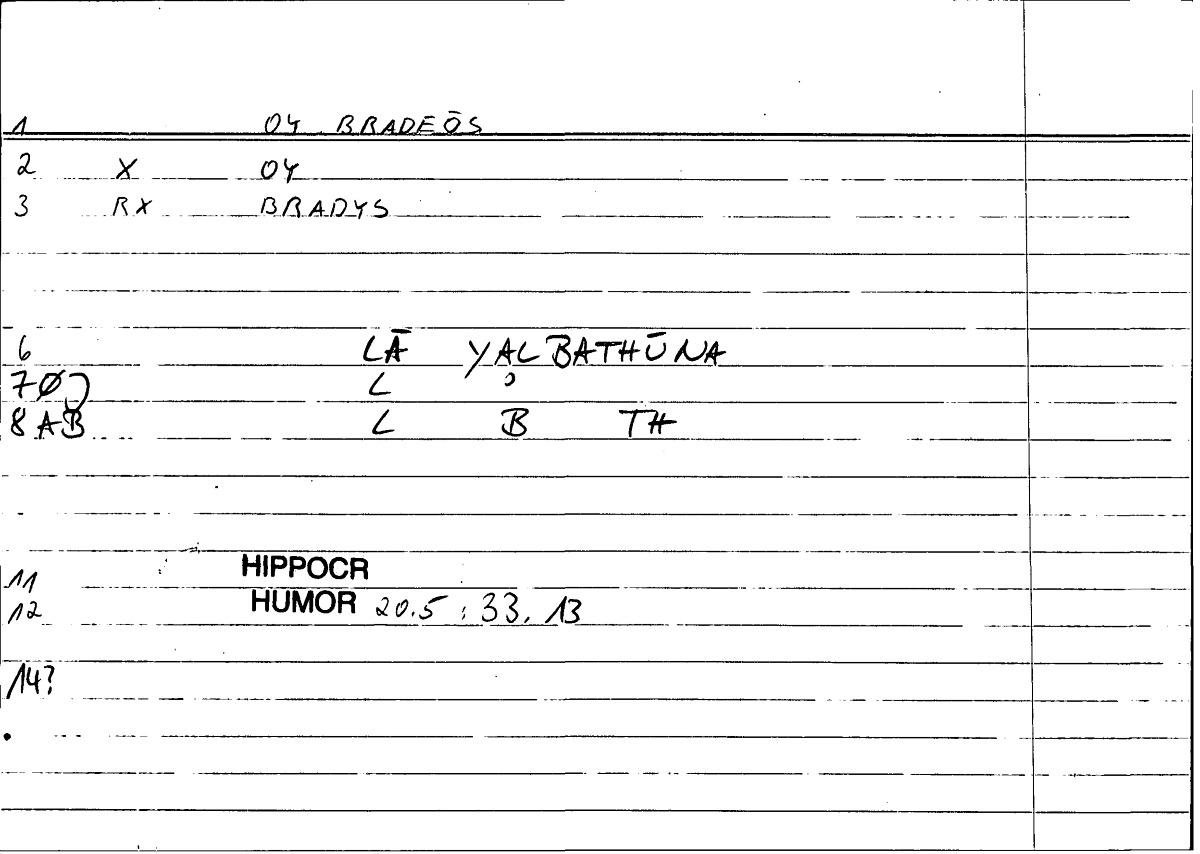 1 OY BRADEŌS
2 X OY
3 RX BRADYS
6 LĀ YALBATHŪNA
7Ø) L ʾ
8AB L B TH
11 HIPPOCR
12 HUMOR 20.5 : 33, 13
14?